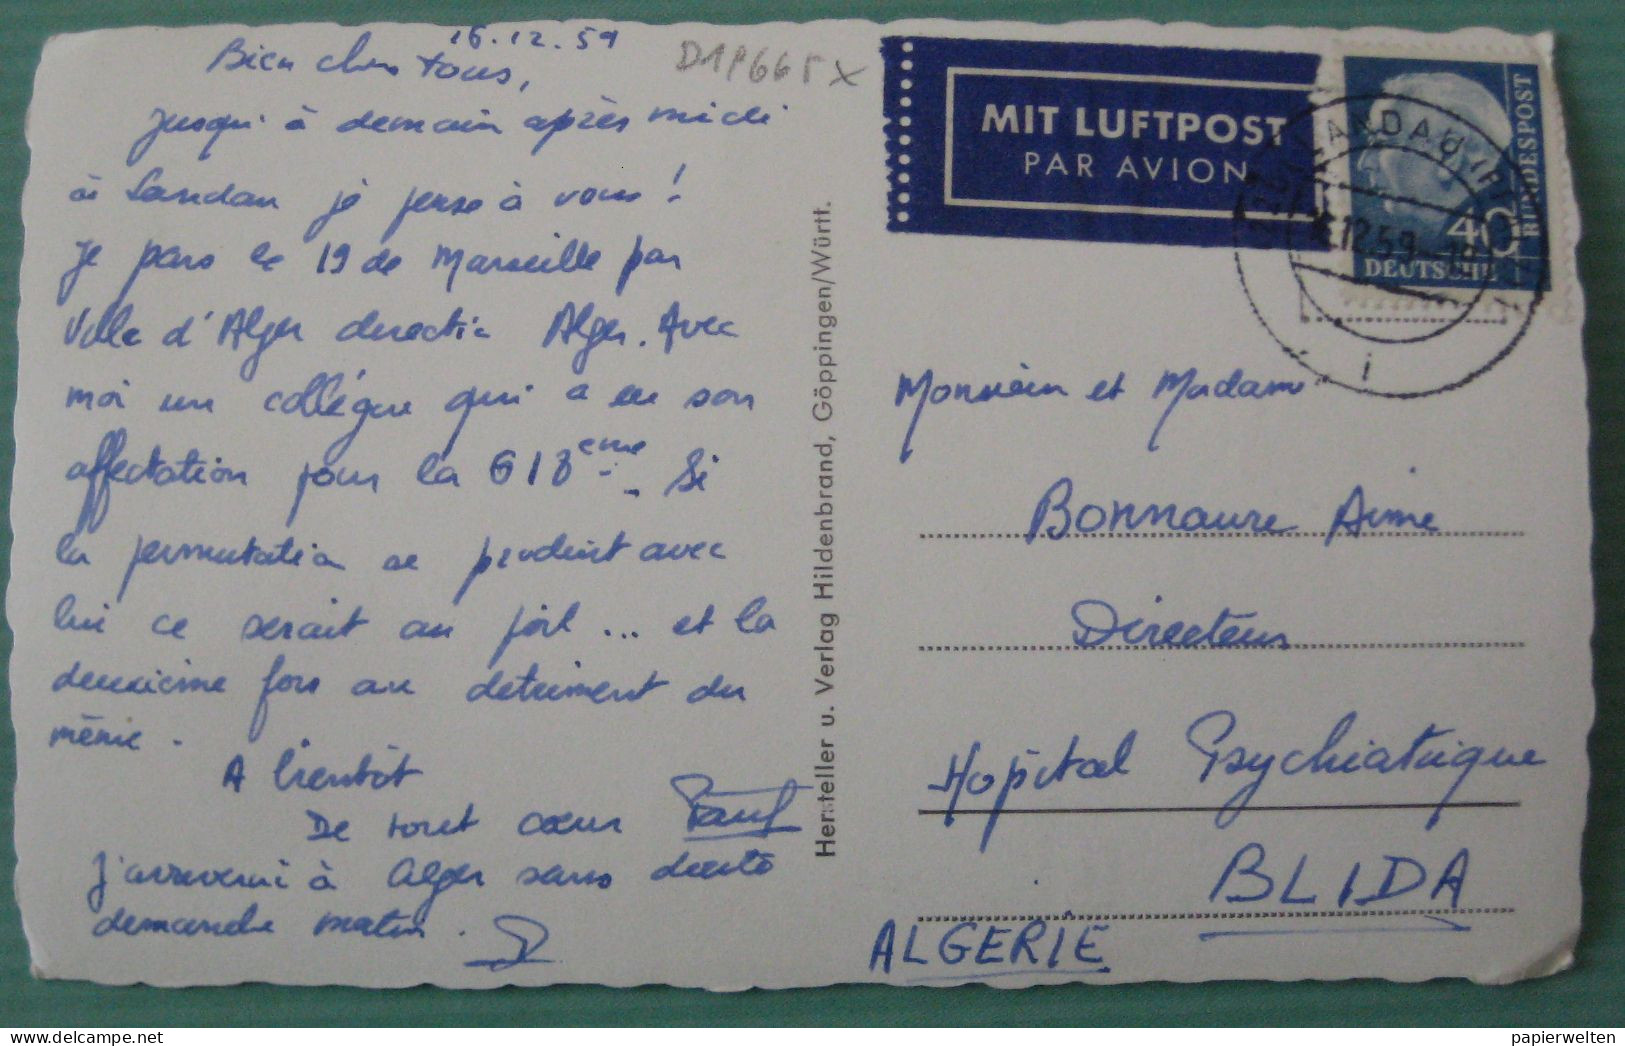 16.12.59
Bien chers tous,
Jusqu'à demain après midi
à Landau je pense à vous!
Je pars le 19 de Marseille par
Ville d'Alger directio Alger. Avec
moi un collègue qui a eu son
affectation pour la 618ème. Si
la permutation se produit avec
lui ce serait au poil ... et la
deuxième fois au detriment du
même.
A bientôt
De tout cœur Paul
J'arriverai à Alger sans doute
dimanche matin.
D1P665X
MIT LUFTPOST
PAR AVION
LANDAU (PF
12.59
40
DEUTSCHE
BUNDESPOST
i
Hersteller u. Verlag Hildenbrand, Göppingen/Württ.
Monsieur et Madame
Bonnaure Aimé
Directeur
Hopital Psychiatrique
BLIDA
ALGERIE
papierwelten